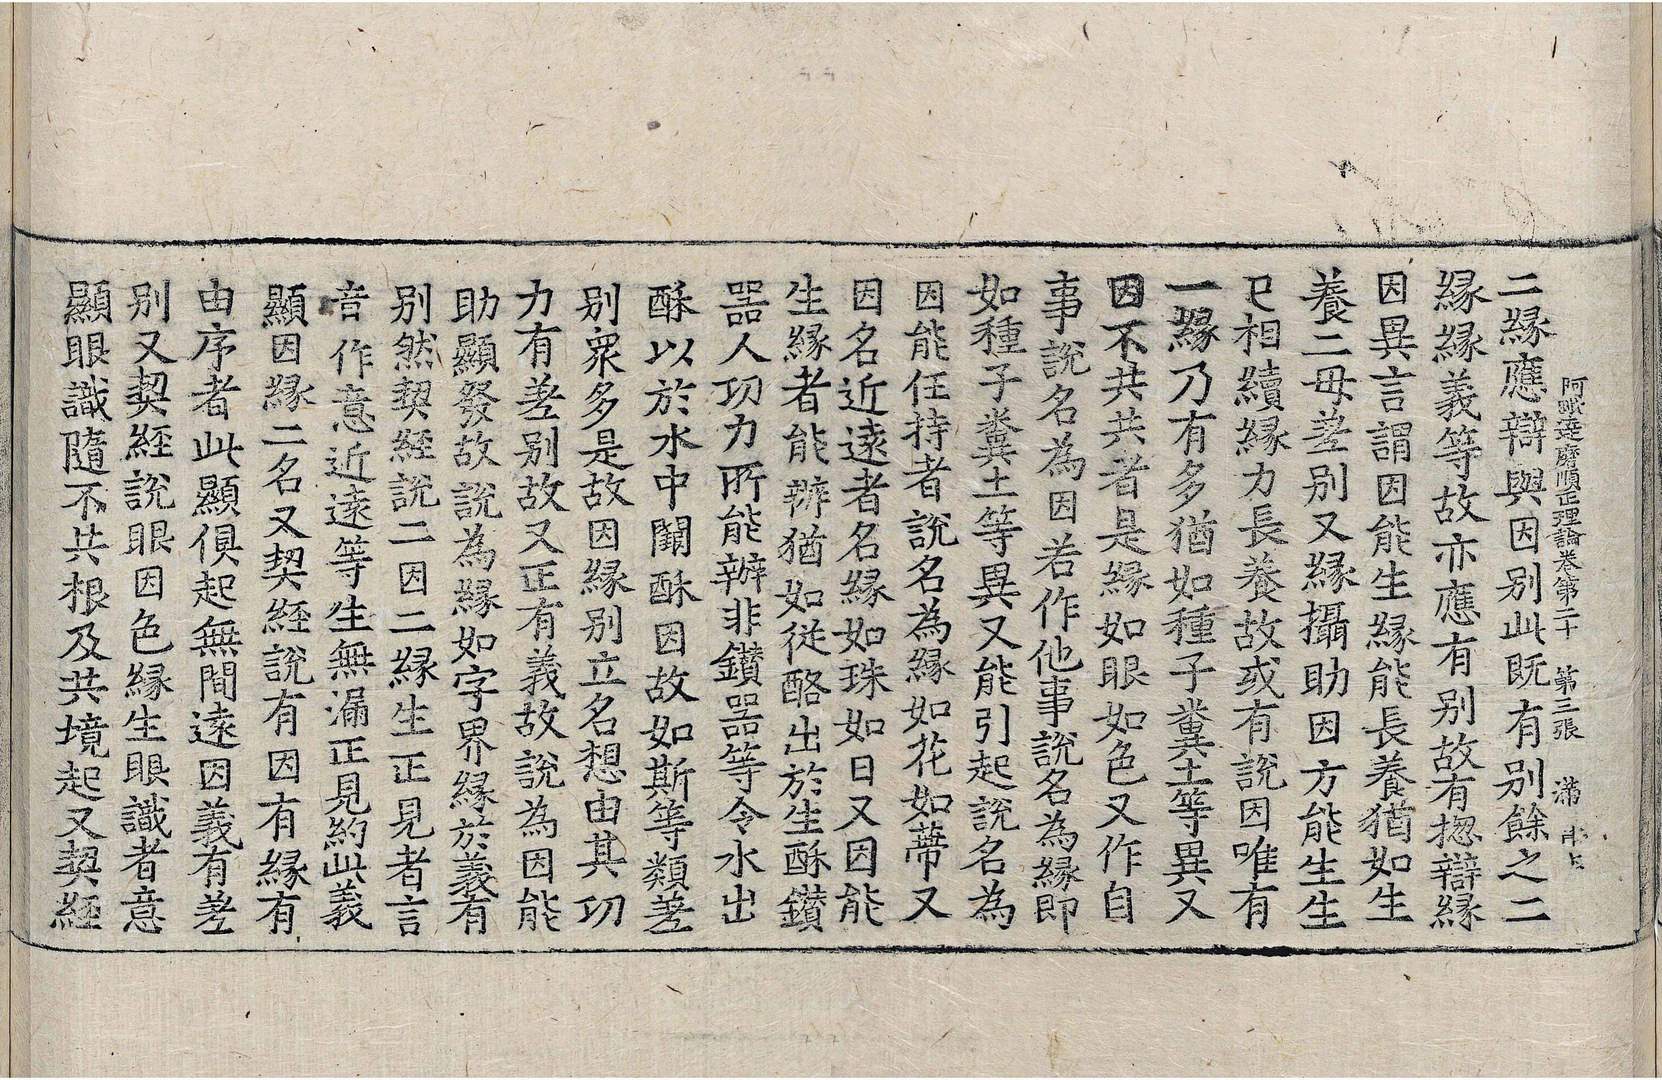 阿毗達磨順正理論卷第二十 第三張 㳍
二緣應辯與因別此既有別餘之二
緣緣緣義等故亦應有別故有揔辯緣
因異言謂因能生緣能長養猶如生
養二母差別又緣攝助因方能生生
已相續緣力長養故或有說因唯有
一緣乃有多猶如種子糞土等異又
因不共共者是緣如眼如色又作自
事說名為因若作他事說名為緣即
如種子糞土等異又能引起說名為
因能任持者說名為緣如花如蔕又
因名近遠者名緣如珠如日又因能
生緣者能辦猶如從酪出於生酥鑚
器人功力所能辦非鑚器等令水出
酥以於水中闕酥因故如斯等類差
別眾多是故因緣別立名想由其功
力有差別故又正有義故說為因能
助顯發故說為緣如字界緣於義有
別然契經說二因二緣生正見者言
音作意近遠等生無漏正見約此義
顯因緣二名又契經說有因有緣有
由序者此顯俱起無間遠因義有差
別又契經說眼因色緣生眼識者意
顯眼識隨不共根及共境起又契經